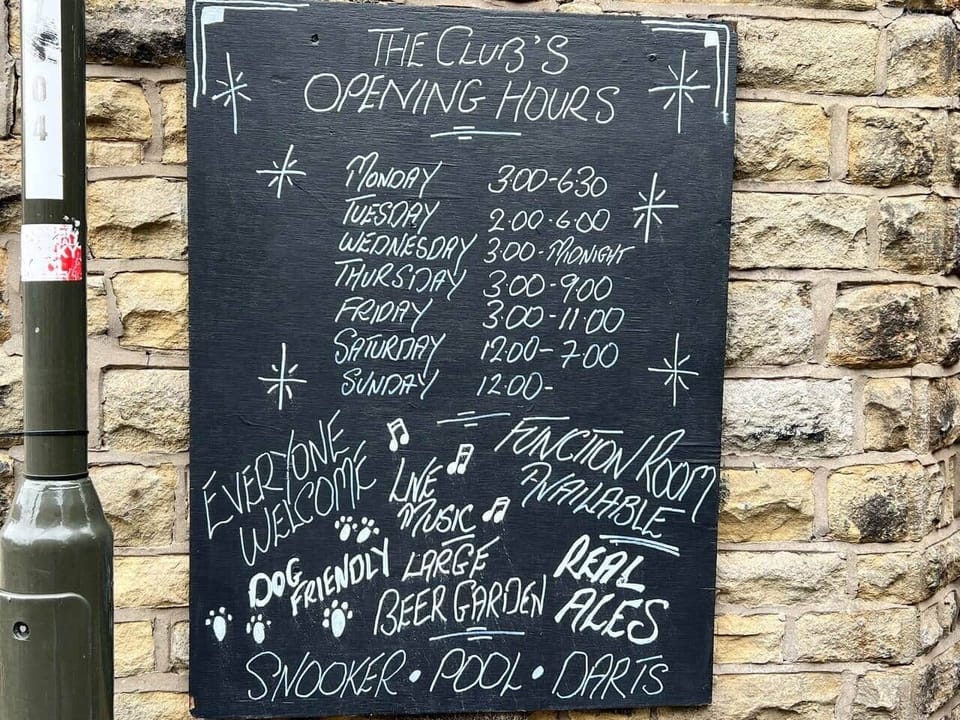 04
THE CLUB'S
OPENING HOURS
MONDAY 3:00-6:30
TUESDAY 2:00-6:00
WEDNESDAY 3:00-MIDNIGHT
THURSDAY 3:00-9:00
FRIDAY 3:00-11:00
SATURDAY 12:00-7:00
SUNDAY 12:00-
EVERYONE
WELCOME
LIVE
MUSIC
FUNCTION ROOM
AVAILABLE
DOG
FRIENDLY
LARGE
BEER GARDEN
REAL
ALES
SNOOKER • POOL • DARTS